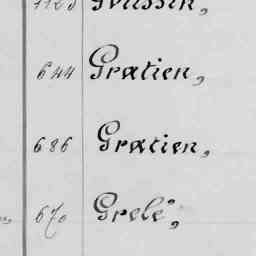 644 Gratien,
686 Gratien,
670 Grelé,